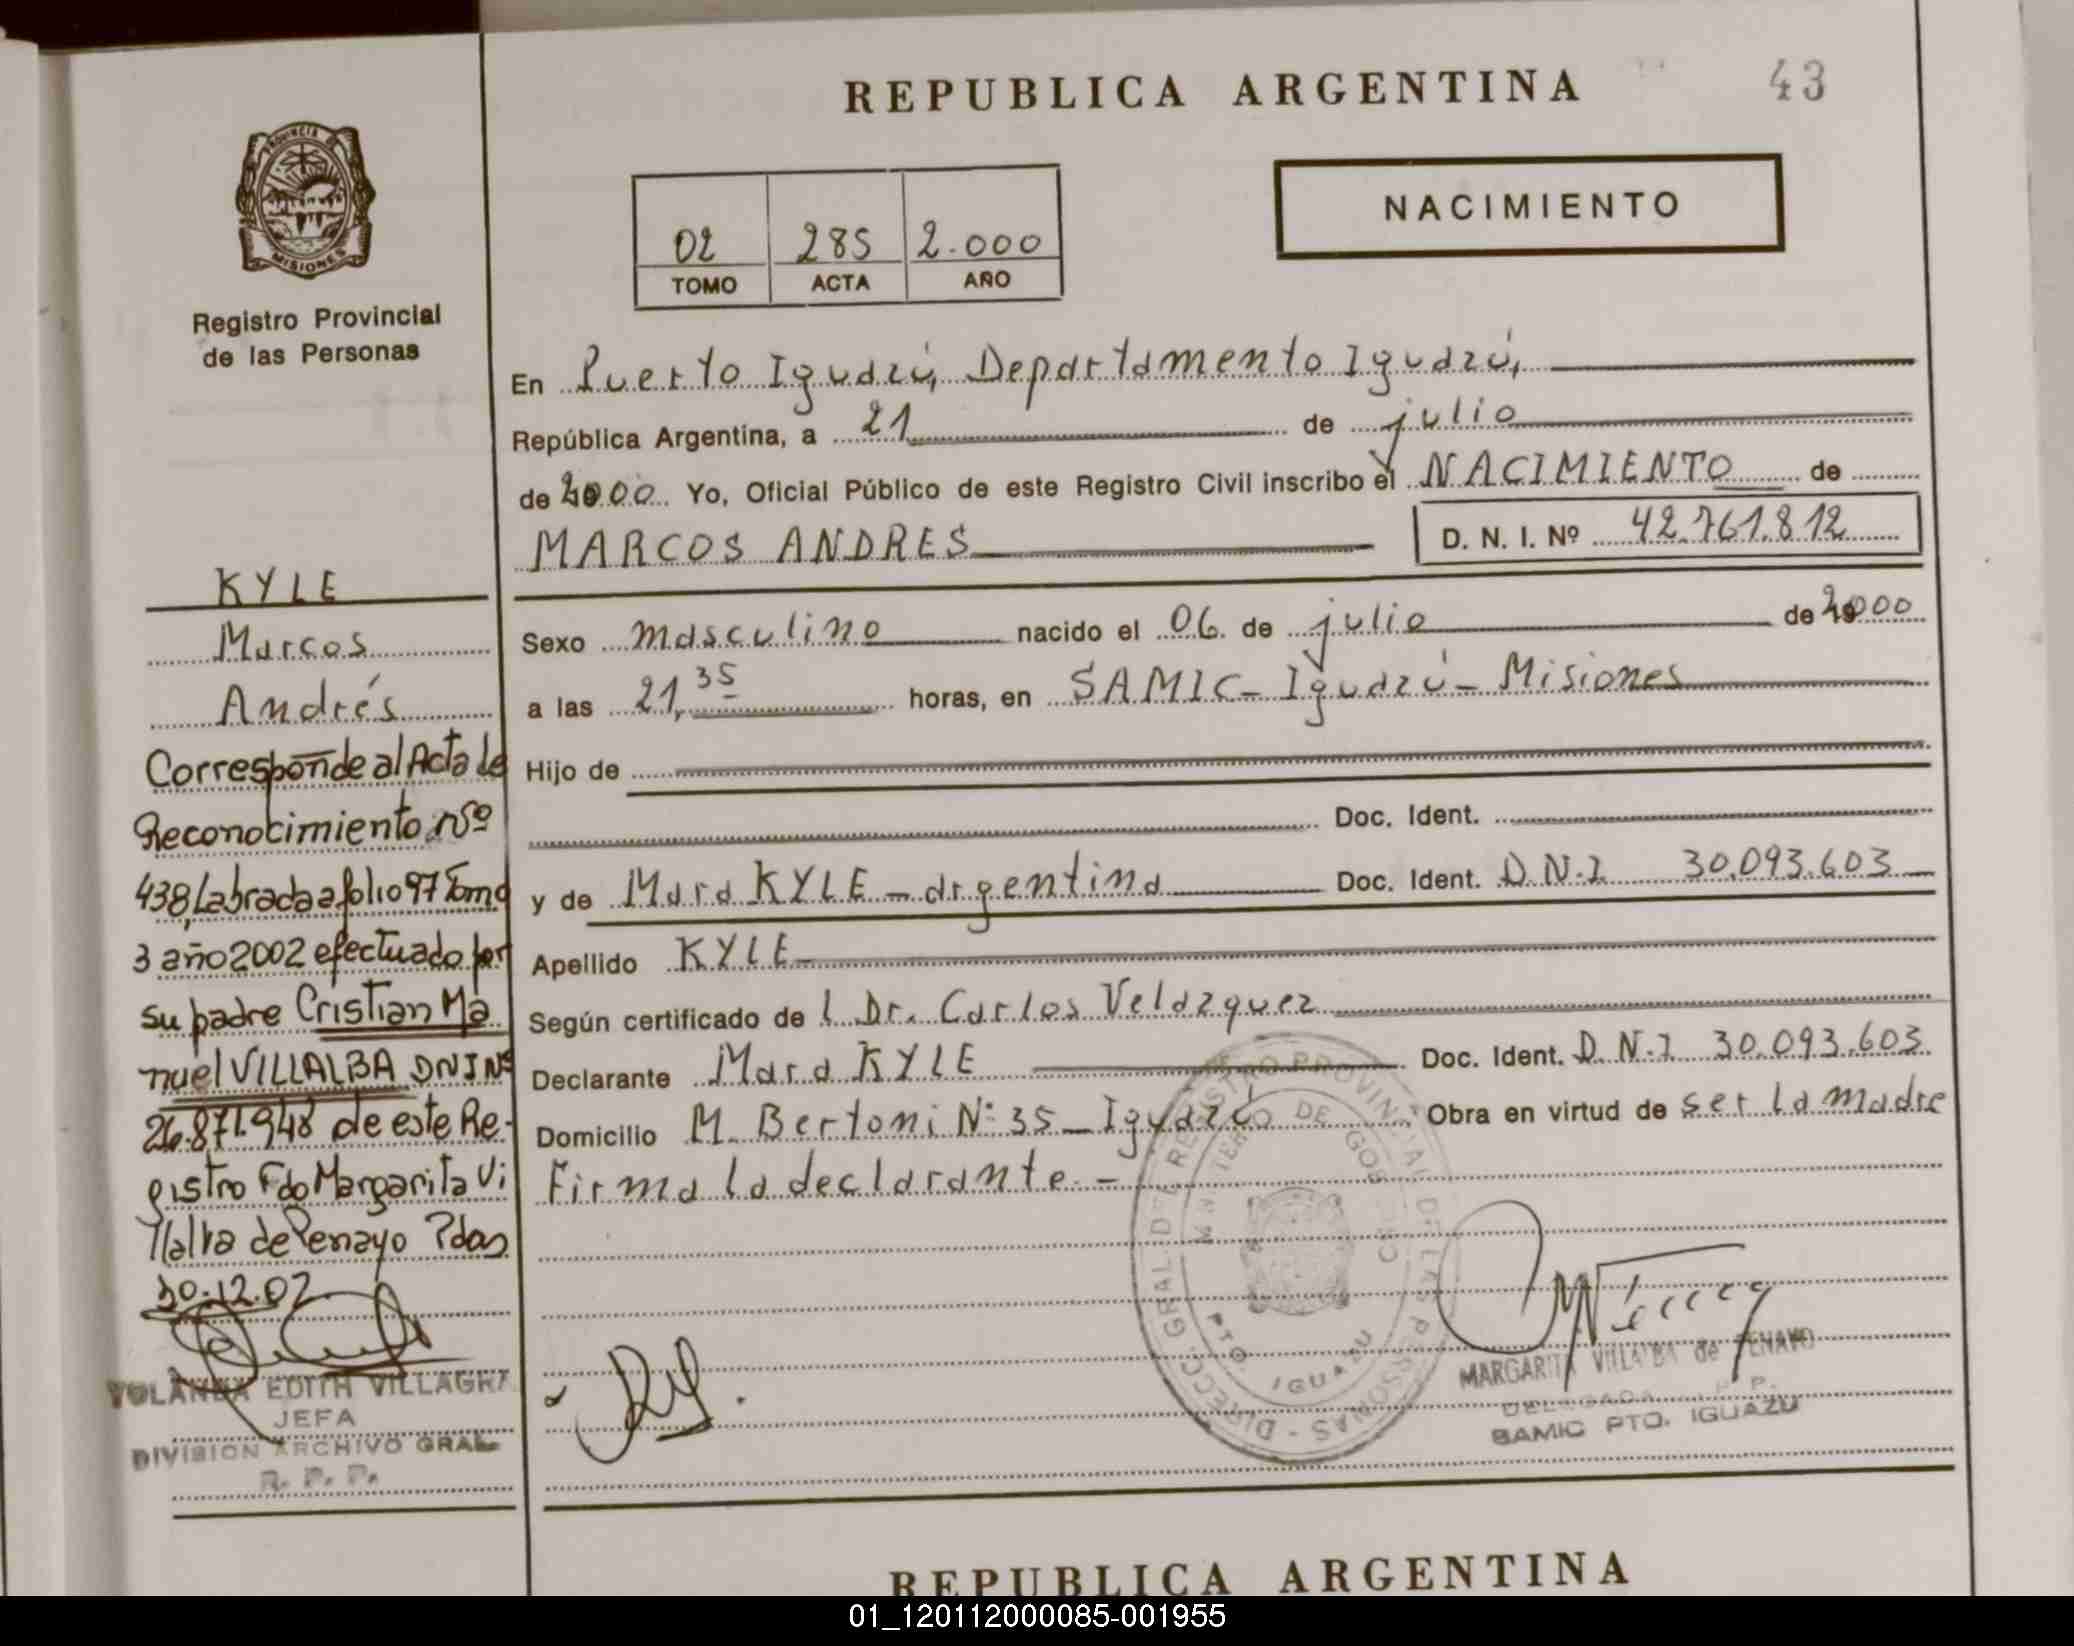 REPUBLICA ARGENTINA
43
PROVINCIA DE
MISIONES
Registro Provincial
de las Personas
02 285 2.000
TOMO ACTA AÑO
NACIMIENTO
En Puerto Iguazú, Departamento Iguazú,
República Argentina, a 21 de julio
de 2000 Yo, Oficial Público de este Registro Civil inscribo el NACIMIENTO de
MARCOS ANDRES
D. N. I. Nº 42.761.812
Sexo masculino nacido el 06 de julio de 2000
a las 21,35 horas, en SAMIC - Iguazú - Misiones
Hijo de
Doc. Ident.
y de Mara KYLE - argentina Doc. Ident. D.N.I 30.093.603
Apellido KYLE
Según certificado de l Dr. Carlos Velazquez
Declarante Mara KYLE Doc. Ident. D.N.I 30.093.603
Domicilio M. Bertoni Nº 35 - Iguazú Obra en virtud de ser la madre
Firma la declarante. -
KYLE
Marcos
Andrés
Corresponde al Acta de
Reconocimiento Nº
438, Labrada a folio 97 Tomo
3 año 2002 efectuado por
su padre Cristian Ma
nuel VILLALBA DNI Nº
26.871.948 de este Re-
gistro Fdo Margarita Vi
llalba de Penayo Pdas
30.12.02
YOLANDA EDITH VILLAGRA
JEFA
DIVISION ARCHIVO GRAL.
R. P. P.
DIRECC. GRAL. DEL REGISTRO PROVINCIAL DE LAS PERSONAS -
MINISTERIO DE GOBIERNO
PTO. IGUAZU
MARGARITA VILLALBA de PENAYO
DELEGADA R. P. P.
SAMIC PTO. IGUAZU
REPUBLICA ARGENTINA
01_120112000085-001955